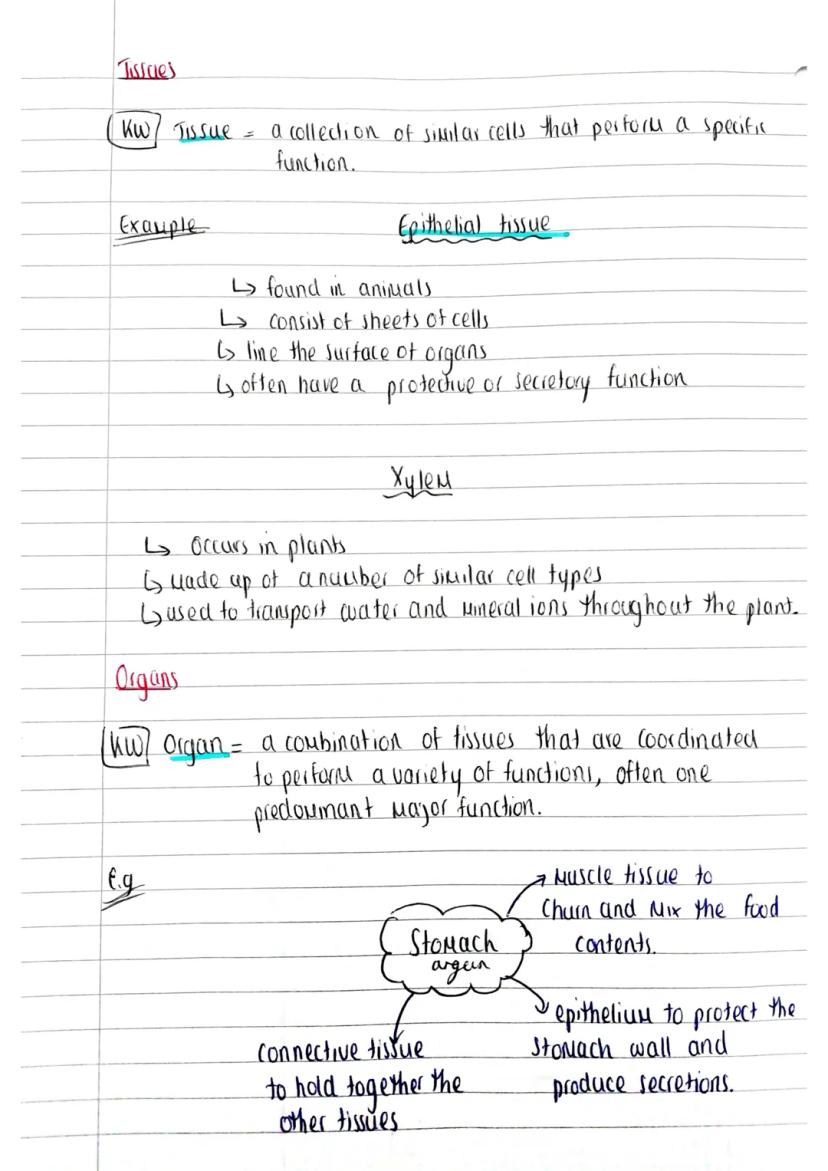 Tissues
KW Tissue = a collection of similar cells that perform a specific
function.
Example Epithelial tissue
↳ found in animals
↳ consist of sheets of cells
↳ line the surface of organs
↳ often have a protective or secretory function
Xylem
↳ Occurs in plants
↳ made up of a number of similar cell types
↳ used to transport water and mineral ions throughout the plant.
Organs
KW Organ = a combination of tissues that are coordinated
to perform a variety of functions, often one
predominant major function.
E.g
Muscle tissue to
churn and mix the food
contents.
Stomach
organ
epithelium to protect the
stomach wall and
produce secretions.
connective tissue
to hold together the
other tissues